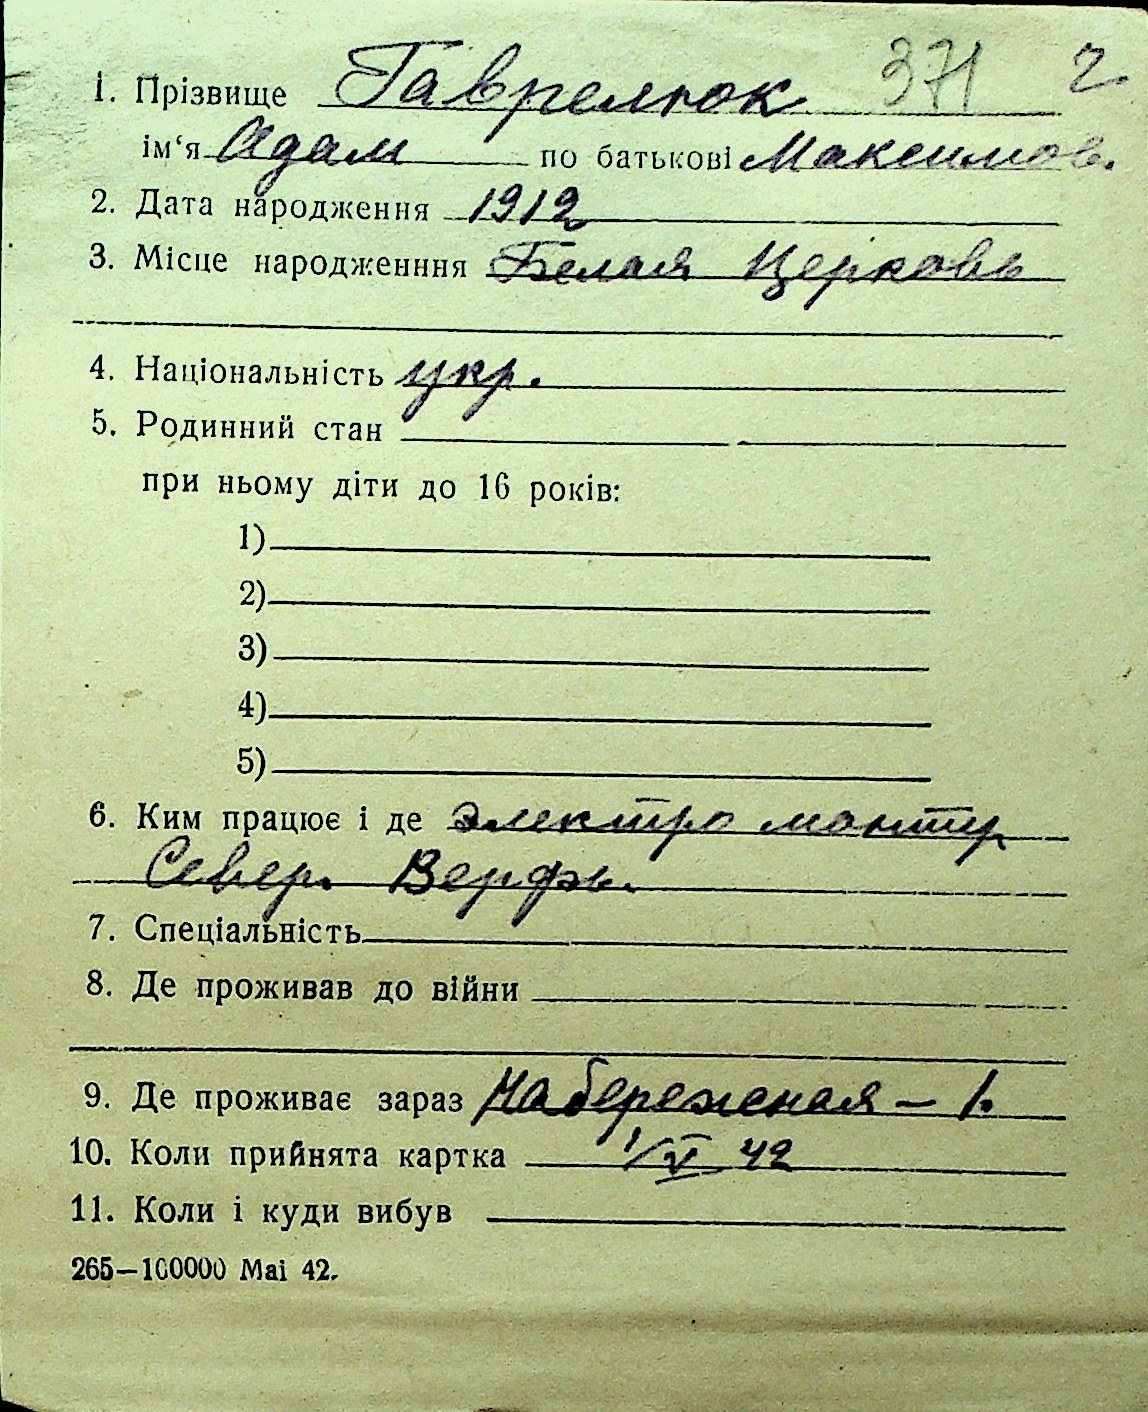 1. Прізвище Гаврелюк 371 2
ім‘я Адам по батькові Максимов.
2. Дата народження 1912
3. Місце народженння Белая Церковь
4. Національність укр.
5. Родинний стан
при ньому діти до 16 років:
1)
2)
3)
4)
5)
6. Ким працює і де электро монтер
Север. Верфь.
7. Спеціальність
8. Де проживав до війни
9. Де проживає зараз Набережная – 1.
10. Коли прийнята картка 1/V 42
11. Коли і куди вибув
265—100000 Mai 42.